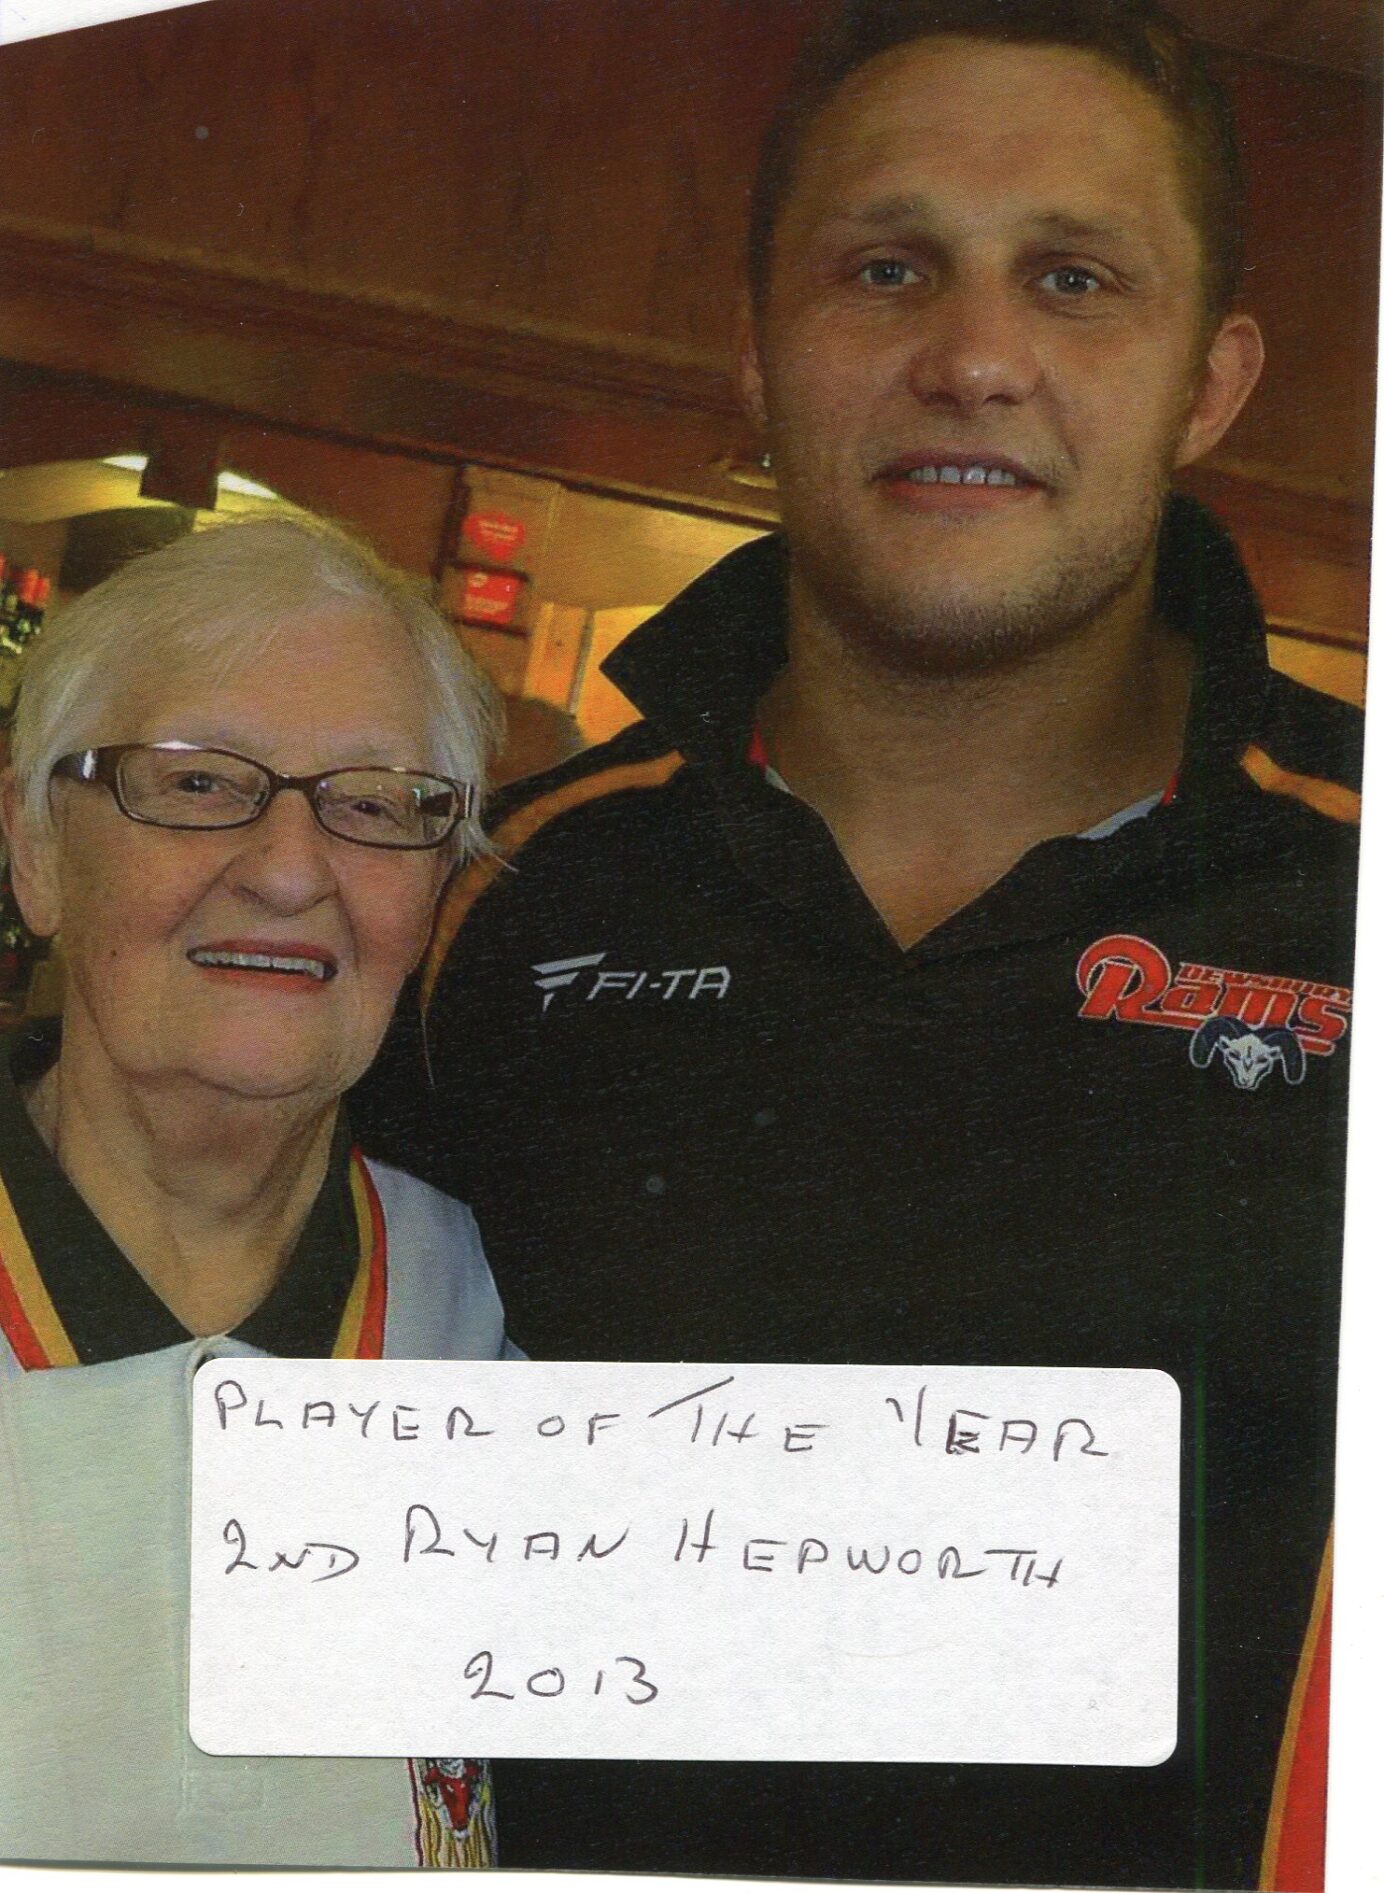 FI-TA
DEWSBURY
Rams
PLAYER OF THE YEAR
2ND RYAN HEPWORTH
2013